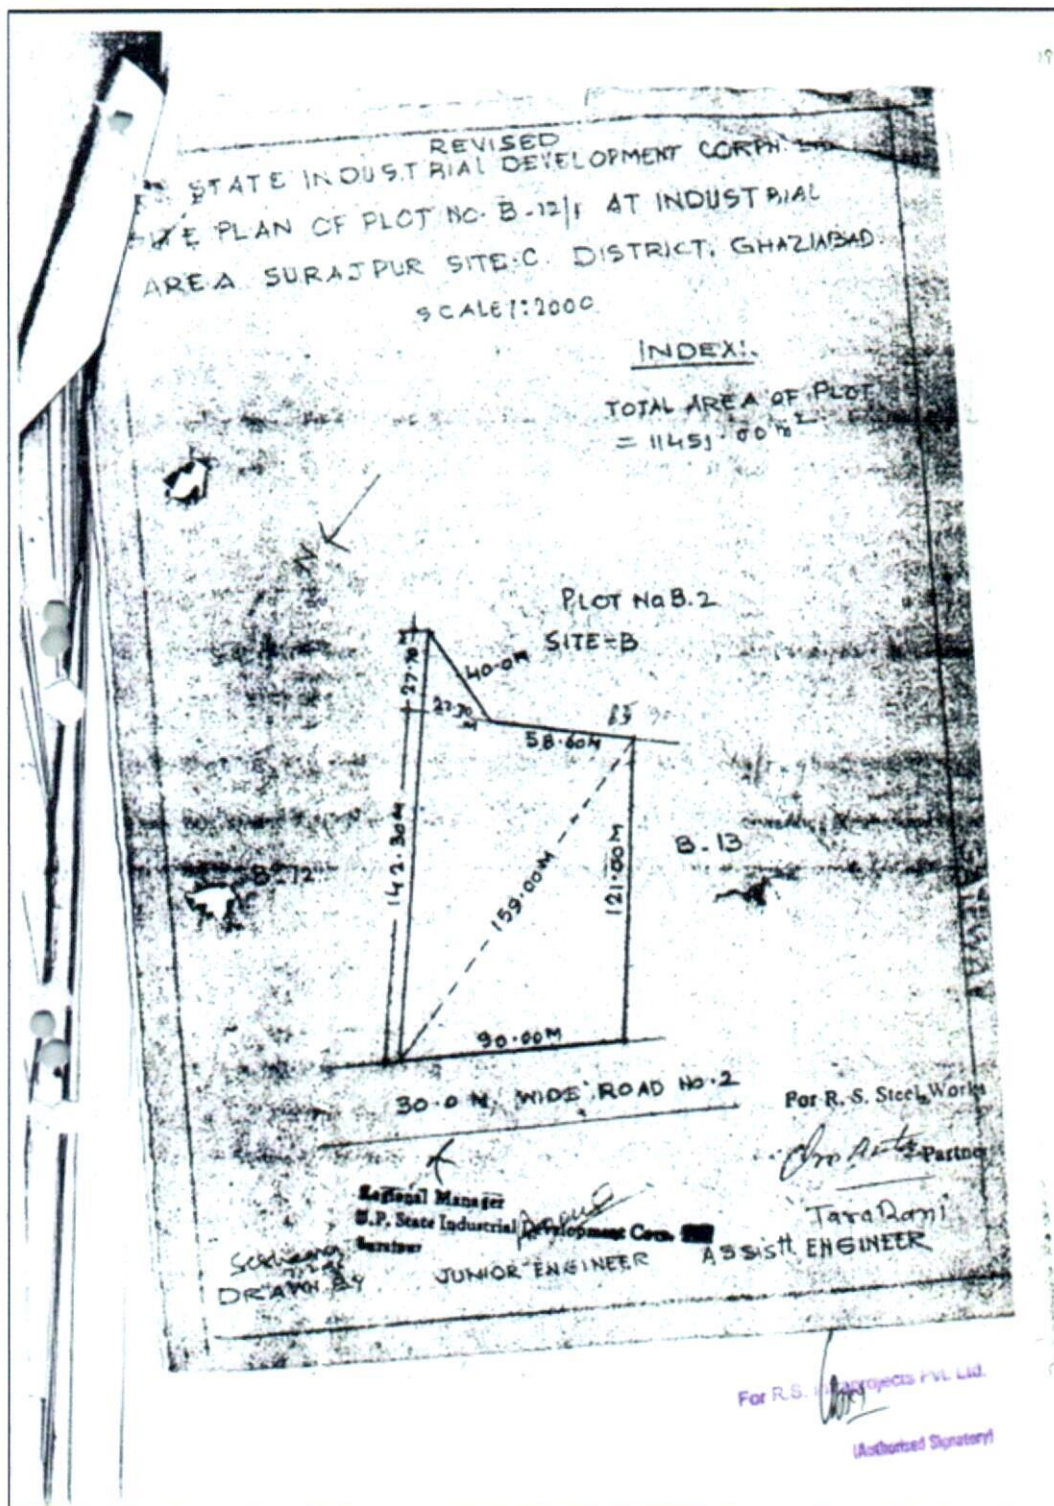 REVISED
STATE INDUSTRIAL DEVELOPMENT CORPN. LTD
SITE PLAN OF PLOT NO. B-12/1 AT INDUSTRIAL
AREA SURAJPUR SITE-C. DISTRICT, GHAZIABAD.
SCALE 1:2000
INDEX:.
TOTAL AREA OF PLOT
= 11451.00 m²
N
PLOT No B.2
SITE-B
40.0M
27.70
27.70
58.60M
142.30M
159.00M
121.00M
B-12
B-13
90.00M
30.0 M, WIDE ROAD NO.2
For R. S. Steel Works
Partner
Regional Manager
U.P. State Industrial Development Corn.
Surajpur
Tara Rani
DRAWN BY
JUNIOR ENGINEER
ASSISTT. ENGINEER
For R.S. Infraprojects Pvt. Ltd.
(Authorised Signatory)